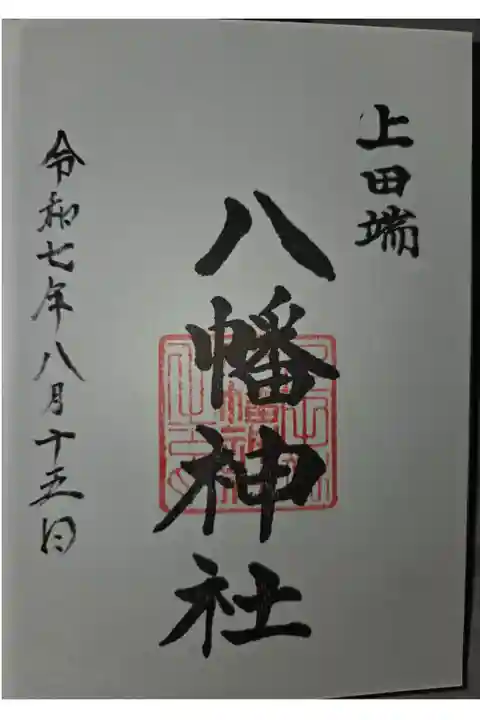 上田端
八幡神社
令和七年八月十五日